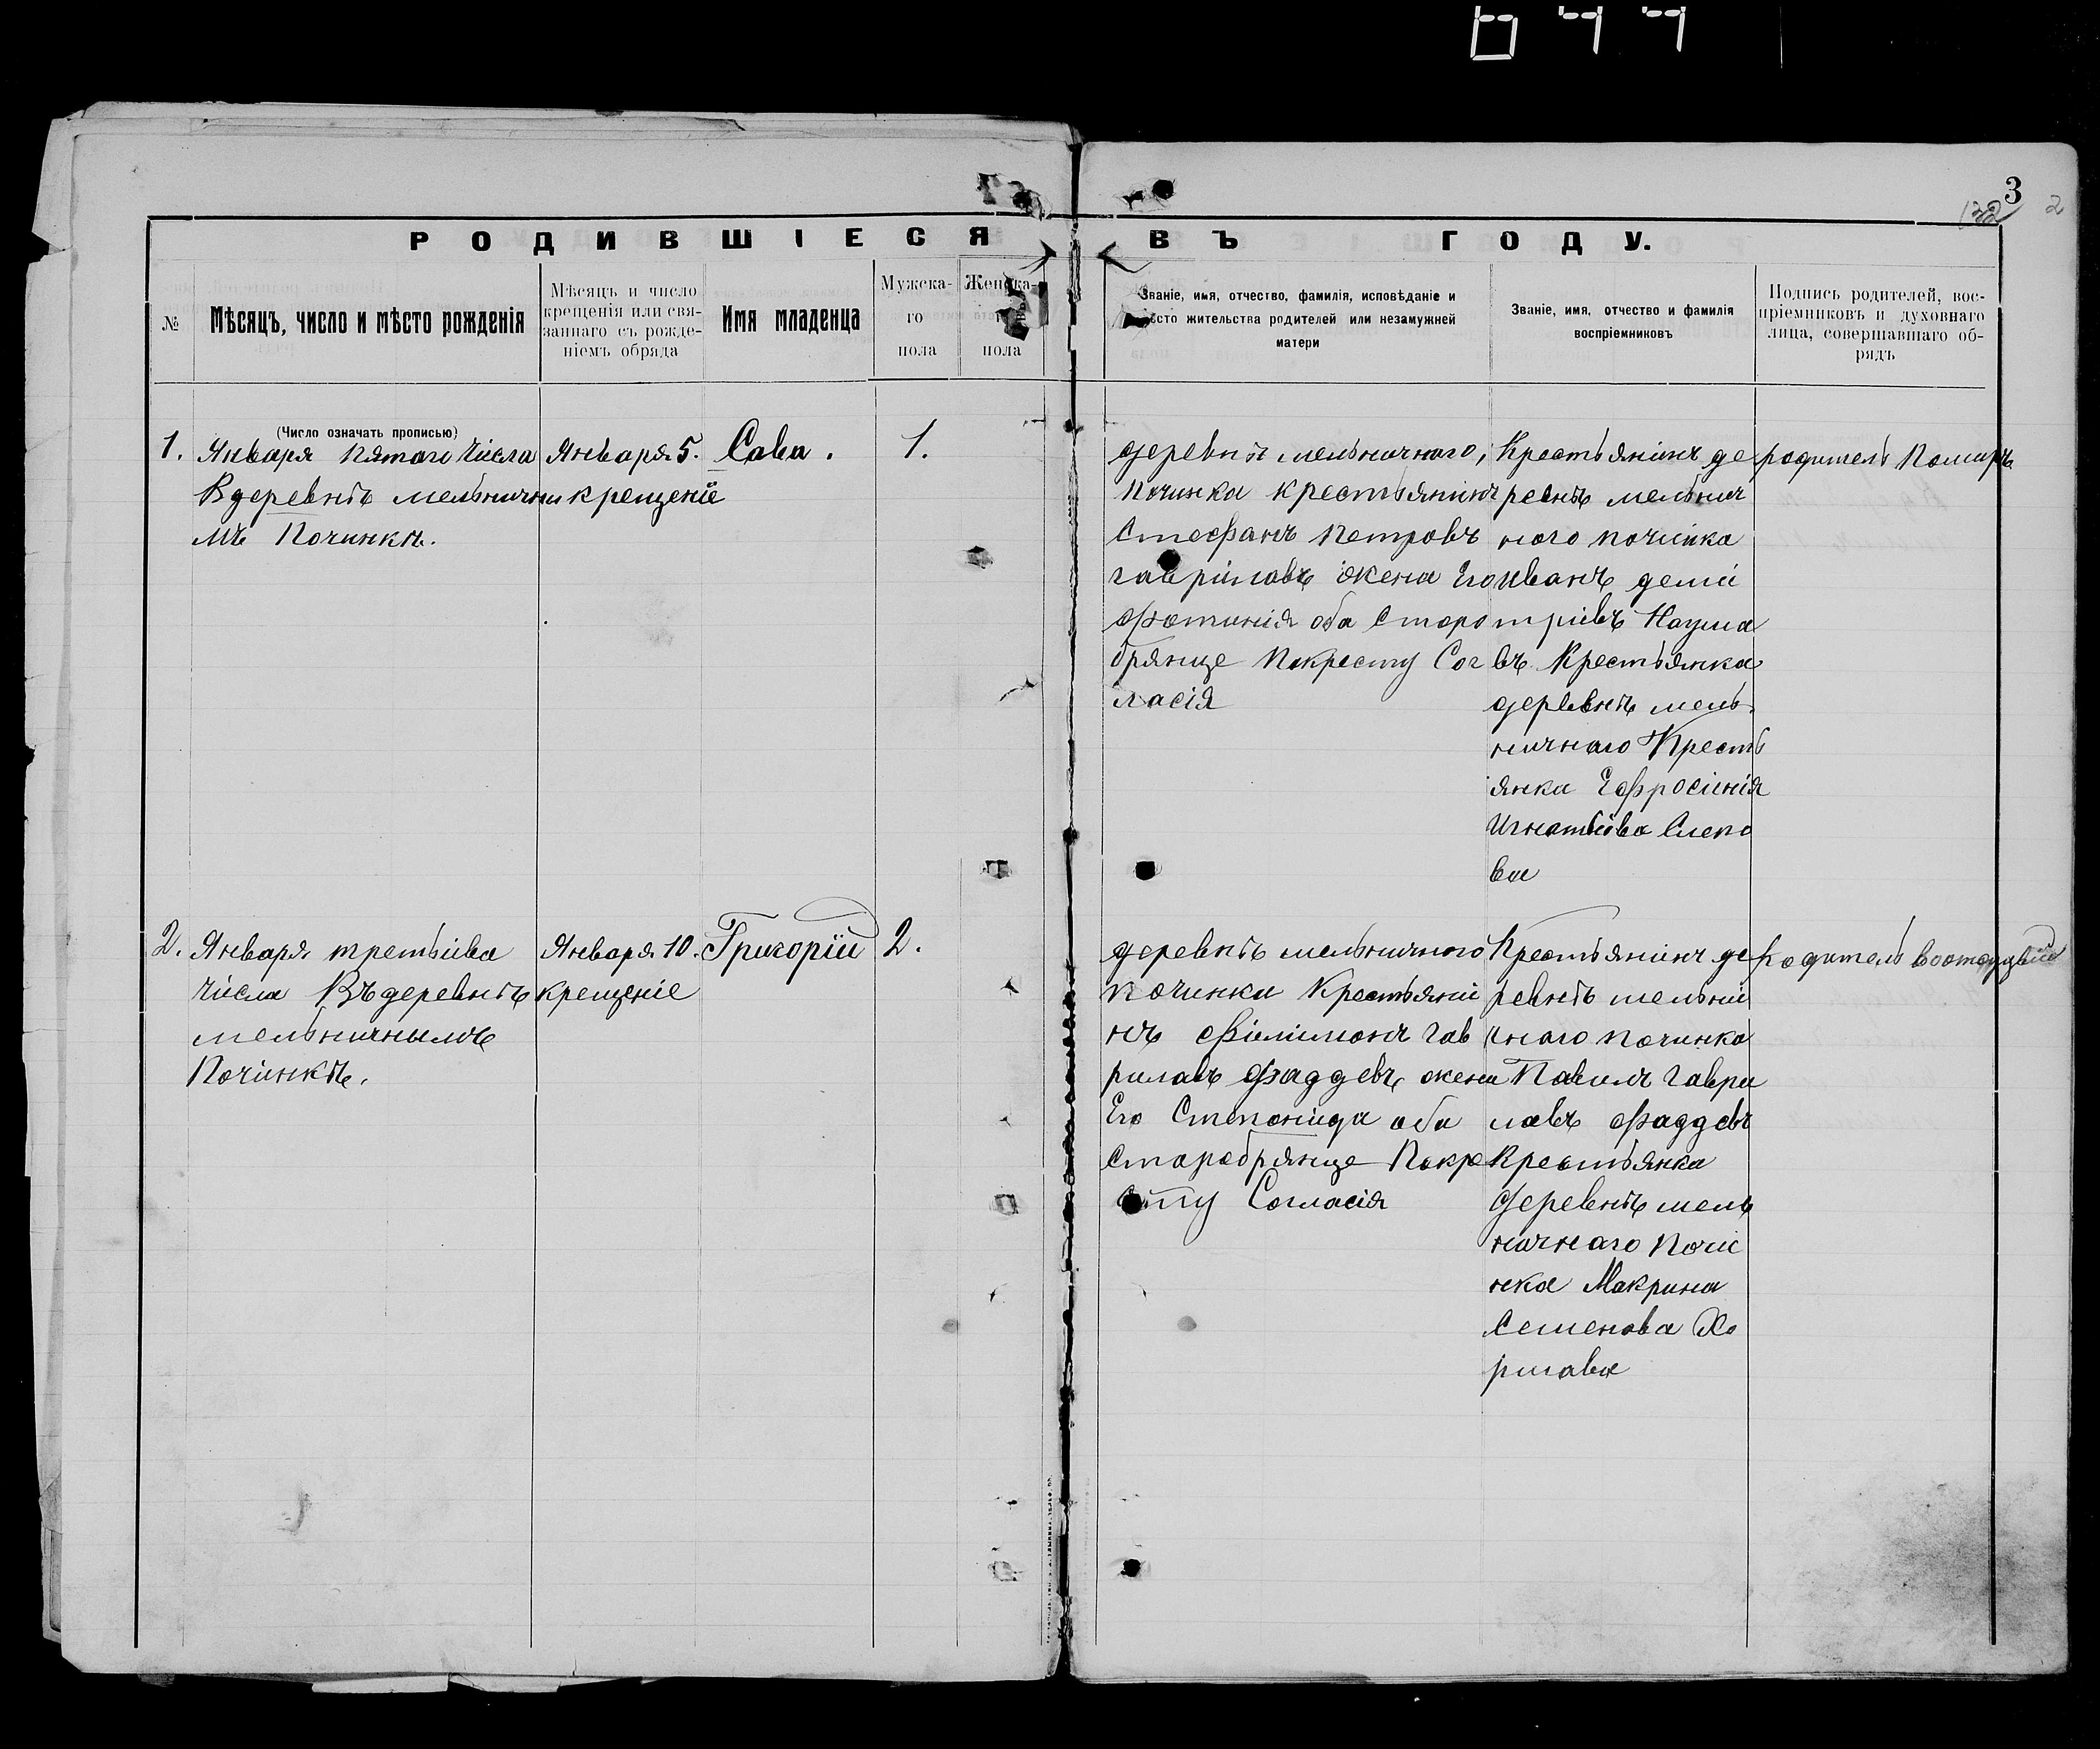 3
132 2
РОДИВШІЕСЯ ВЪ ГОДУ.
№
Мѣсяцъ, число и мѣсто рожденія
Мѣсяцъ и число
крещенія или свя-
заннаго съ рожде-
ніемъ обряда
Имя младенца
Мужска-
го
пола
Женска-
пола
Званіе, имя, отчество, фамилія, исповѣданіе и
мѣсто жительства родителей или незамужней
матери
Званіе, имя, отчество и фамилія
воспріемниковъ
Подпись родителей, вос-
пріемниковъ и духовнаго
лица, совершавшаго об-
рядъ
(Число означать прописью)
1. Января пятаго числа
В деревнѣ мельнични
мъ Починкѣ.
Января 5.
крещеніе
Сава.
1.
деревнѣ мельничнаго,
починка крестьянинъ
Стефанъ Петровъ
гаврілавъ жена Его
Фотинія оба Старо
брянце Покресту Сог
ласія
Крестьянинъ де
ревнѣ мельнич
ного починка
Иванъ деми
тріевъ Наума
въ Крестьянка
деревнѣ мель
ничнаго Кресть
янка Ефросинія
Игнатьева Слепо
ва
родитель Помиръ
2. Января третьива
числа Въ деревнѣ
мельничнымъ
Починкѣ.
Января 10.
крещеніе
Григорій
2.
деревнѣ мельничного
починка Крестьяни
нъ Філимонъ гав
рилавъ Фаддевъ жена
Его Степонида оба
Старобрянце Покре
сту Согласія
Крестьянинъ де
ревнѣ мельни
чнаго починка
Павилъ гаври
лавъ Фаддевъ
Крестьянка
деревнѣ мель
ничнаго Почи
нка Макрина
Семенова Хо
ршава
Родитель